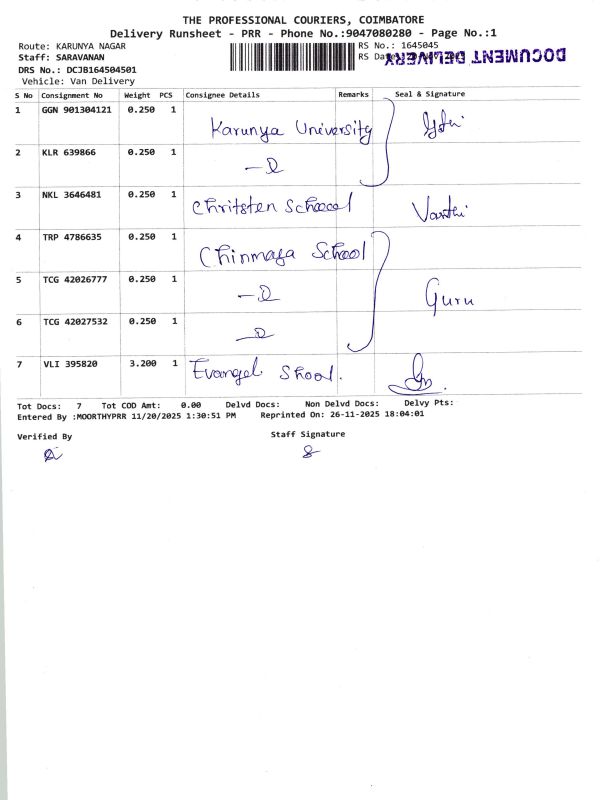 THE PROFESSIONAL COURIERS, COIMBATORE
Delivery Runsheet - PRR - Phone No.:9047080280 - Page No.:1
Route: KARUNYA NAGAR RS No.: 1645045
Staff: SARAVANAN RS Date DOCUMENT DELIVERY
DRS No.: DCJB164504501
Vehicle: Van Delivery
S No Consignment No Weight PCS Consignee Details Remarks Seal & Signature
1 GGN 901304121 0.250 1 Karunya University
2 KLR 639866 0.250 1
3 NKL 3646481 0.250 1 Chritsten School
4 TRP 4786635 0.250 1 Chinmaya School
5 TCG 42026777 0.250 1 Guru
6 TCG 42027532 0.250 1
7 VLI 395820 3.200 1 Evangel Shool.
Tot Docs: 7 Tot COD Amt: 0.00 Delvd Docs: Non Delvd Docs: Delvy Pts:
Entered By :MOORTHYPRR 11/20/2025 1:30:51 PM Reprinted On: 26-11-2025 18:04:01
Verified By Staff Signature